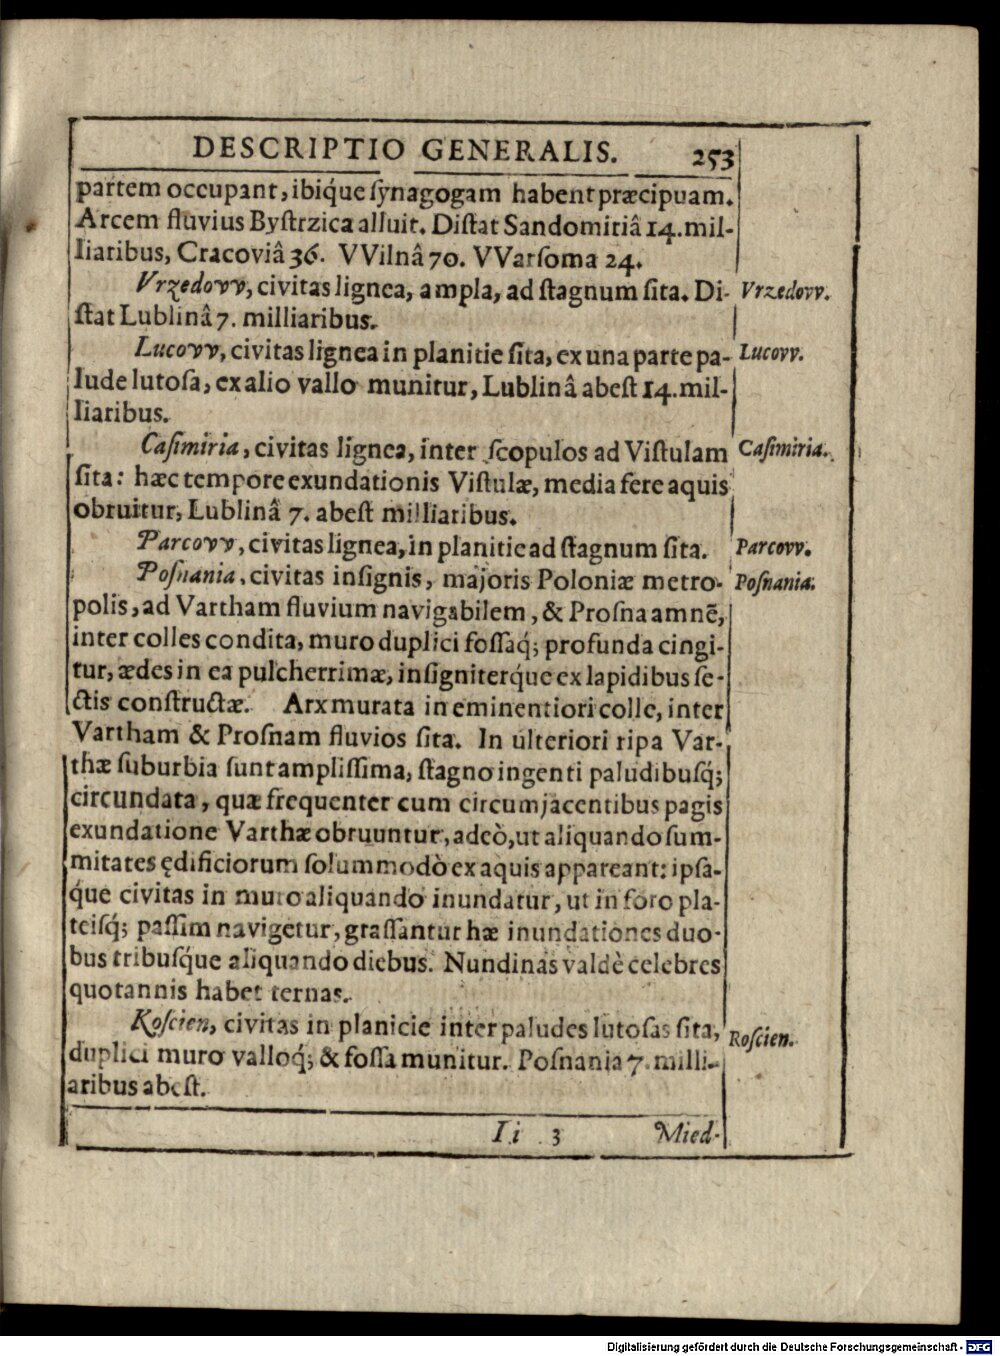 DESCRIPTIO GENERALIS. 253
partem occupant, ibiq́ue ſynagogam habent præcipuam.
Arcem fluvius Byſtrzica alluit. Diſtat Sandomiriâ 14. mil-
liaribus, Cracoviâ 36. VVilnâ 70. VVarſoma 24.
Vrzedovv, civitas lignea, ampla, ad ſtagnum ſita. Di-
Vrzedovv.
ſtat Lublinâ 7. milliaribus.
Lucovv, civitas lignea in planitie ſita, ex una parte pa-
Lucovv.
lude lutoſa, ex alio vallo munitur, Lublinâ abeſt 14. mil-
liaribus.
Caſimiria, civitas lignea, inter ſcopulos ad Viſtulam
Caſimiria.
ſita: hæc tempore exundationis Viſtulæ, media fere aquis
obruitur, Lublinâ 7. abeſt milliaribus.
Parcovv, civitas lignea, in planitie ad ſtagnum ſita.
Parcovv.
Poſnania, civitas inſignis, majoris Poloniæ metro-
Poſnania.
polis, ad Vartham fluvium navigabilem, & Proſna amnẽ,
inter colles condita, muro duplici foſſaq́; profunda cingi-
tur, ædes in ea pulcherrimæ, inſigniterq́ue ex lapidibus ſe-
ctis conſtructæ. Arx murata in eminentiori colle, inter
Vartham & Proſnam fluvios ſita. In ulteriori ripa Var-
thæ ſuburbia ſunt ampliſſima, ſtagno ingenti paludibuſq́;
circundata, quæ frequenter cum circumjacentibus pagis
exundatione Varthæ obruuntur, adeò, ut aliquando ſum-
mitates ędificiorum ſolummodò ex aquis appareant: ipſa-
q́ue civitas in muro aliquando inundatur, ut in foro pla-
teiſq́; paſſim navigetur, graſſantur hæ inundationes duo-
bus tribuſq́ue aliquando diebus. Nundinas valdè celebres
quotannis habet ternas.
Koſcien, civitas in planicie inter paludes lutoſas ſita,
Roſcien.
duplici muro valloq́; & foſſa munitur. Poſnania 7. milli-
aribus abeſt.
Ii 3 Mied-
Digitalisierung gefördert durch die Deutsche Forschungsgemeinschaft - DFG